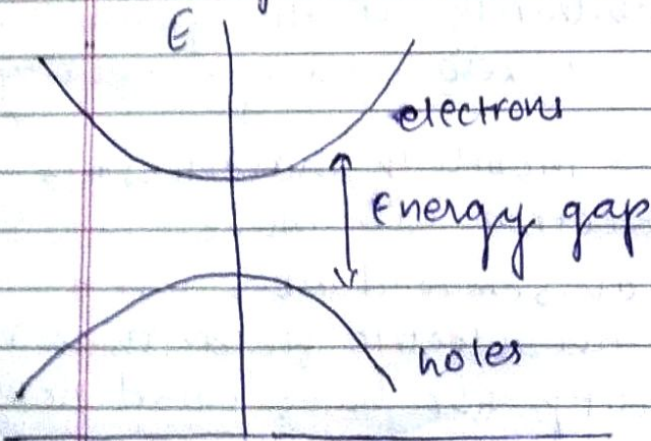 E
electrons
Energy gap
holes